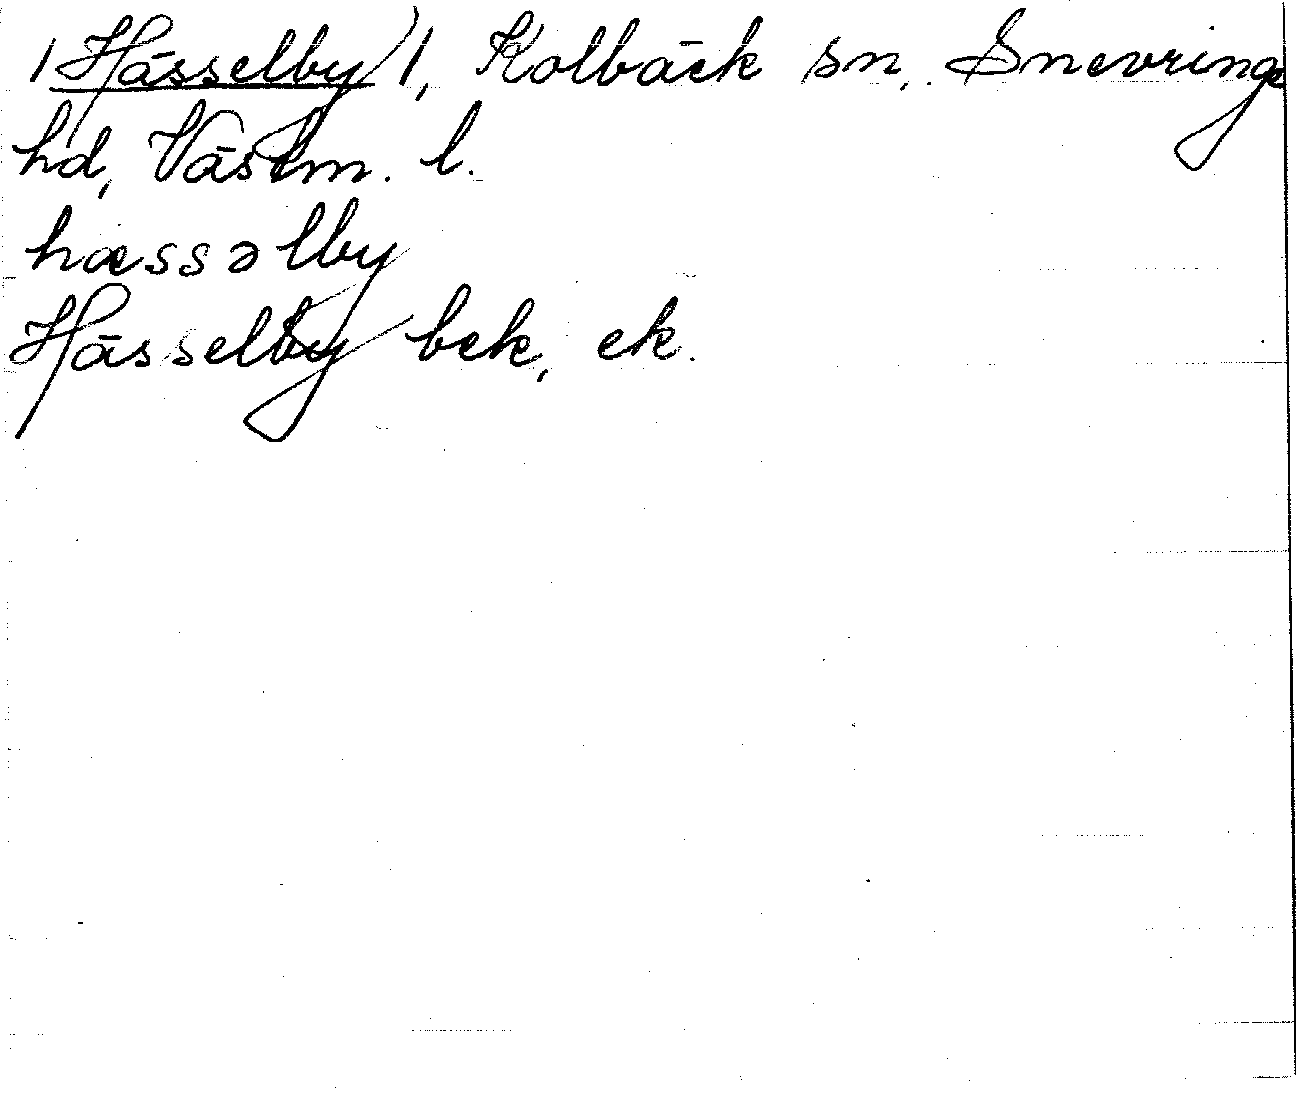 /Hässelby/, Kolbäck sn, Snevringe
hd, Västm. l.
hæssəlby
Hässelby bek, ek.